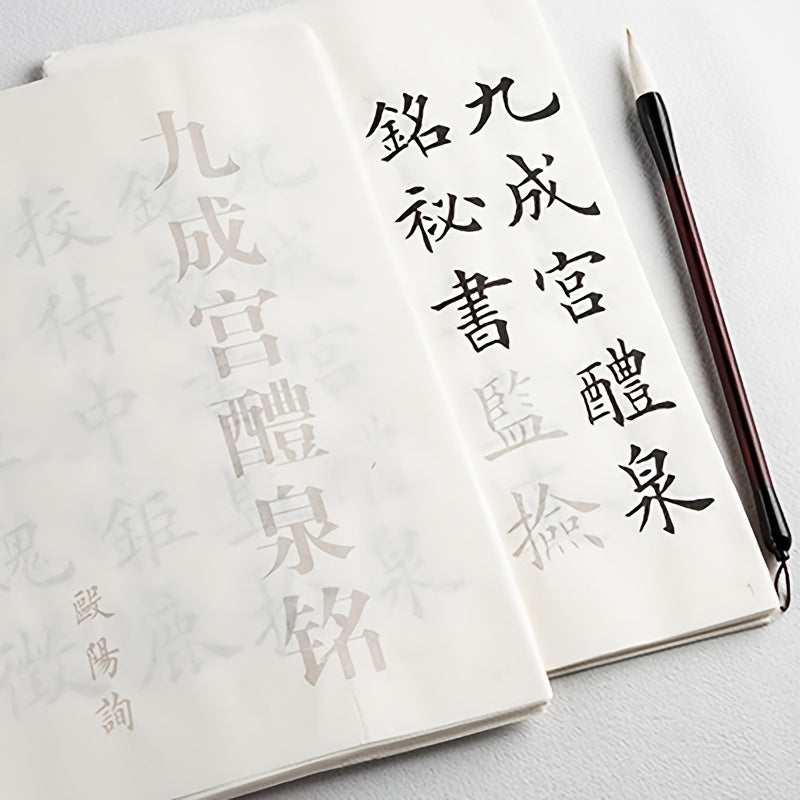 九成宮醴泉
銘祕書監撿
1
九成宫醴泉铭
歐陽詢
校侍中鉅鹿